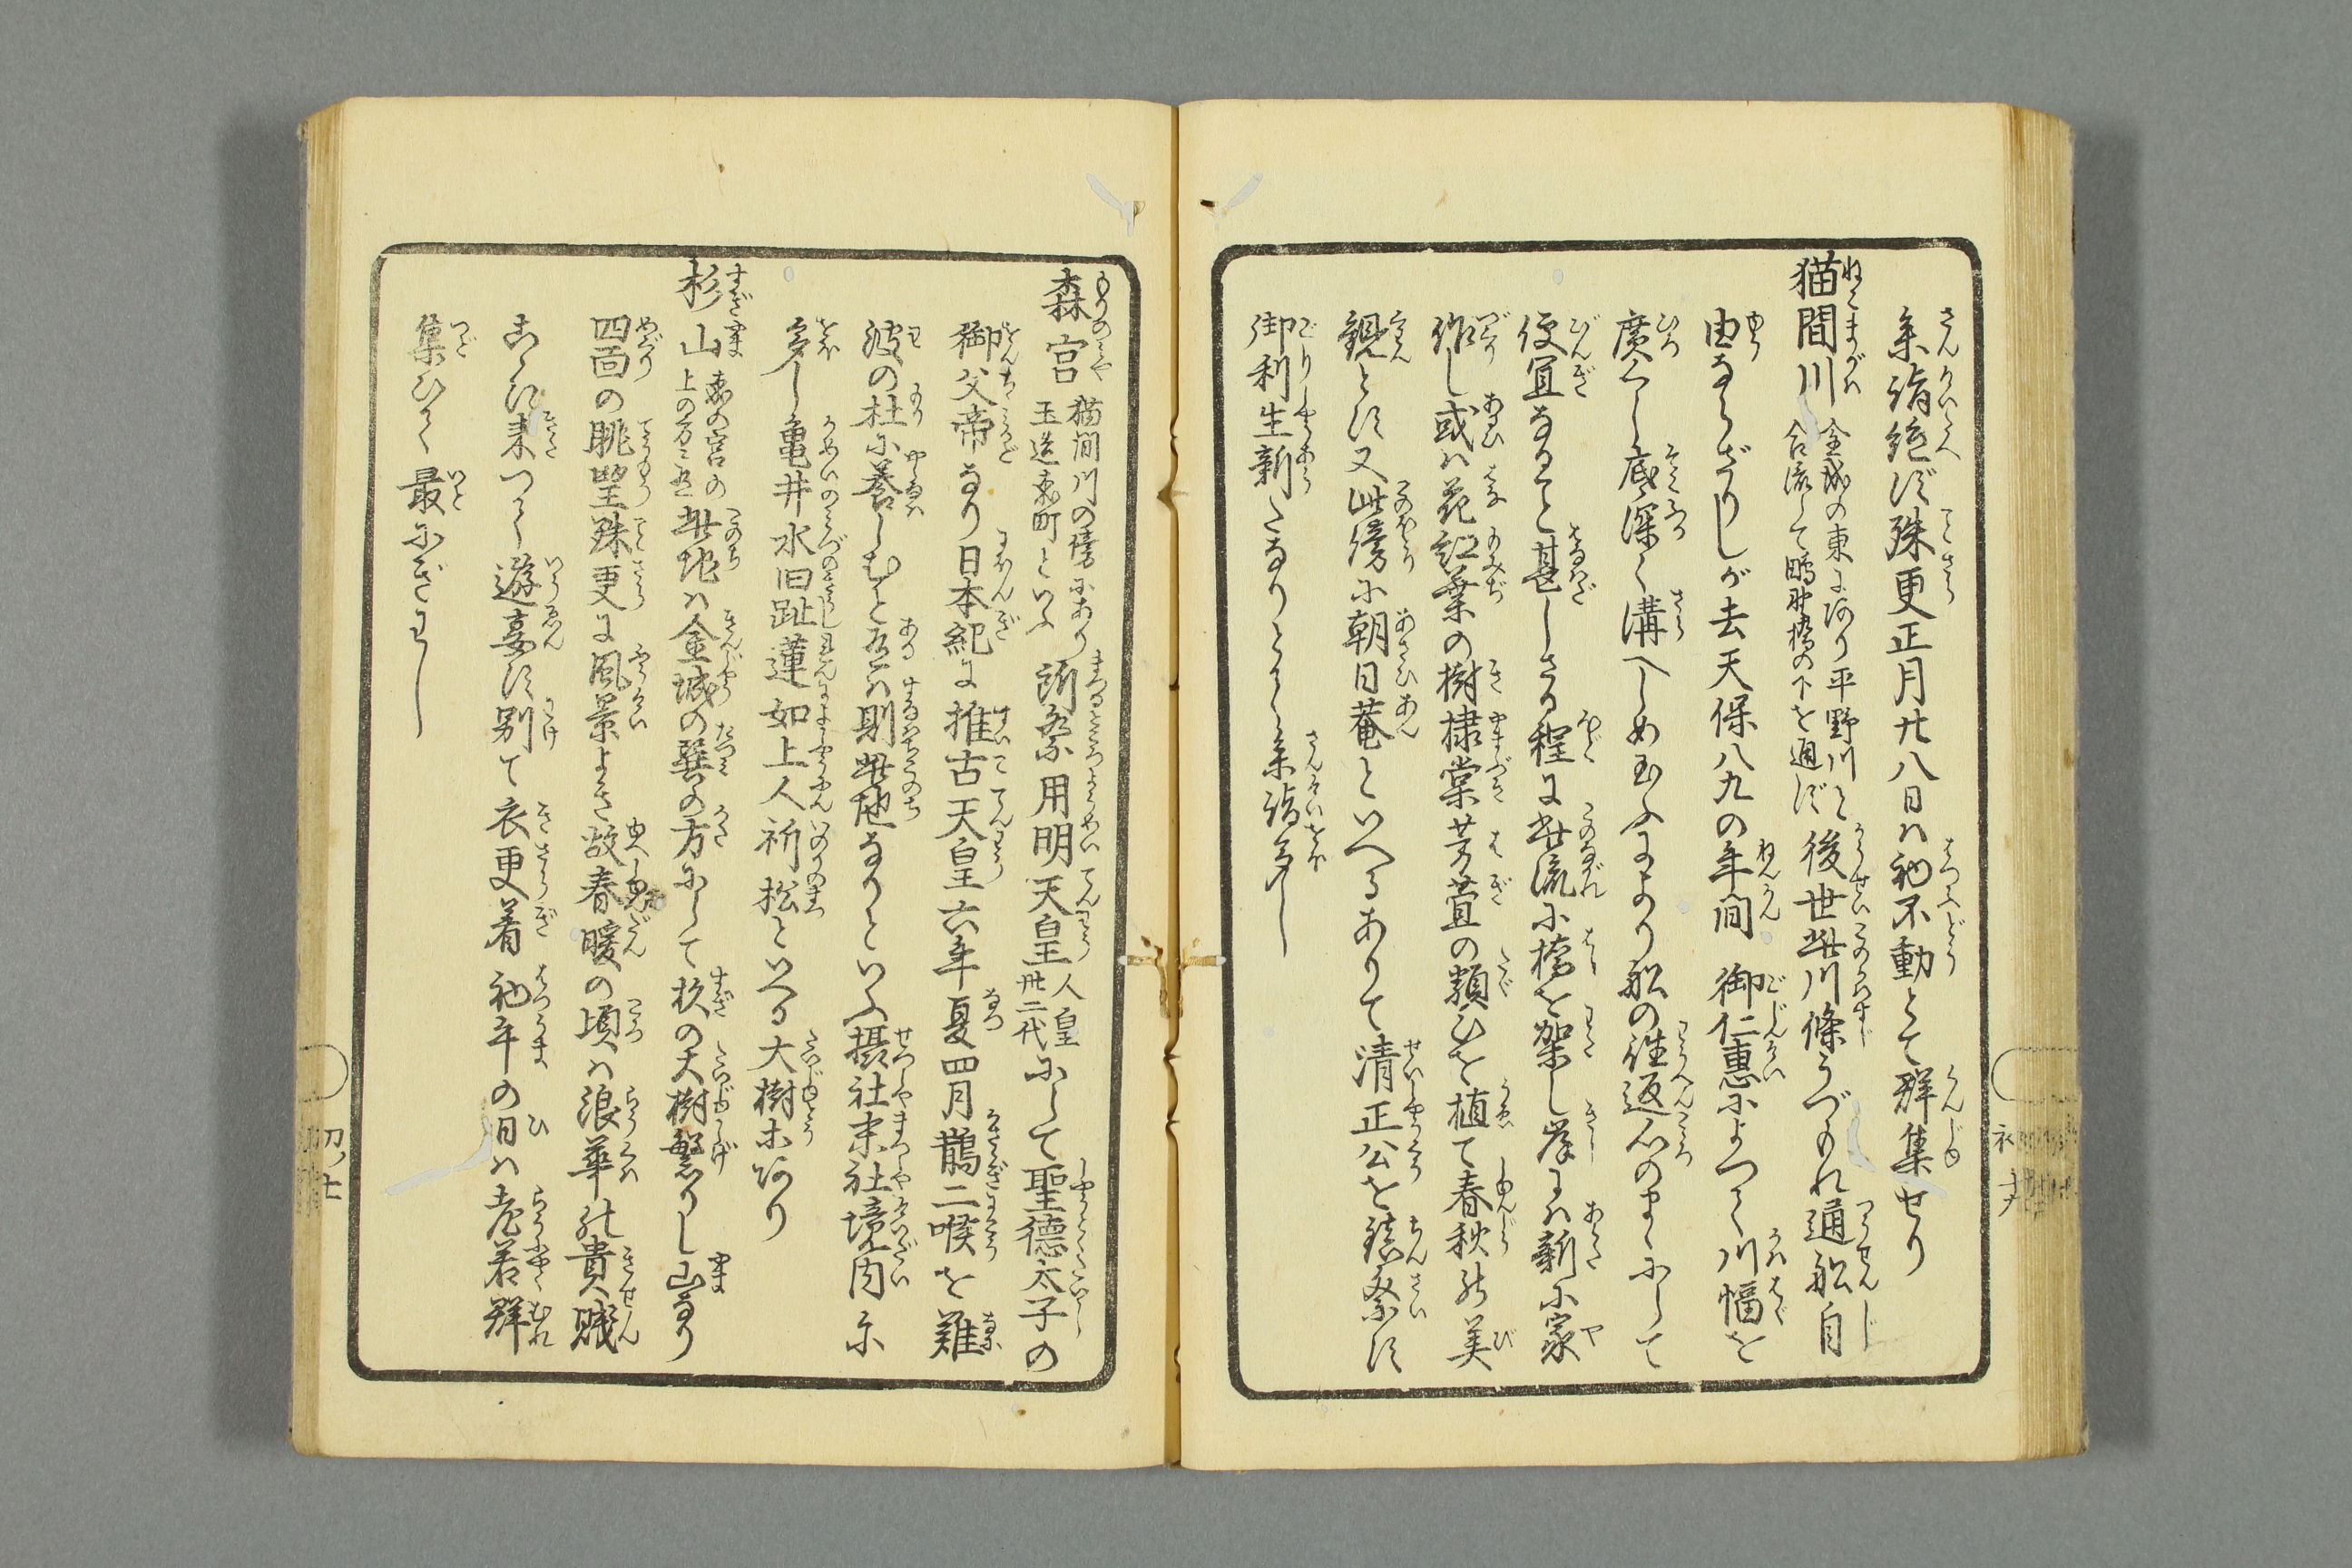 参詣絶ず殊更正月廿八日ハ初不動とて群集せり
猫間川 金城の東にあり平野川と
合流して鴫野橋の下を通ず 後世此川條うづもれ通船自
由ならざりしが去天保八九の年間 御仁恵によつて川幅を
廣くし底深く溝へしめ玉ふにより船の往返心のまゝにして
便宜なること甚しさる程に此流に橋を架し岸にハ新に家
作し或ハ花紅葉の樹棣棠芽萱の類ひを植て春秋の美
観とす又此傍に朝日菴といへるありて清正公を鎮祭す
御利生新たなりとて参詣多し
森宮 猫間川の傍にあり
玉造東町といふ 所祭用明天皇 人皇
卅二代 にして聖徳太子の
御父帝なり日本紀に推古天皇六年夏四月鵲二喉を難
波の杜に養しむと有ハ則此地なりといふ摂社末社境内に
多し亀井水旧趾蓮如上人祈松といへる大樹等あり
杉山 森の宮の
上の方ニ有 此地ハ金城の巽の方にして杉の大樹繁りし山なり
四面の眺望殊更に風景よき故春暖の頃ハ浪華の貴賤
こゝに来つて遊宴す別て衣更着初午の日ハ老若群
集ひて最にぎはし